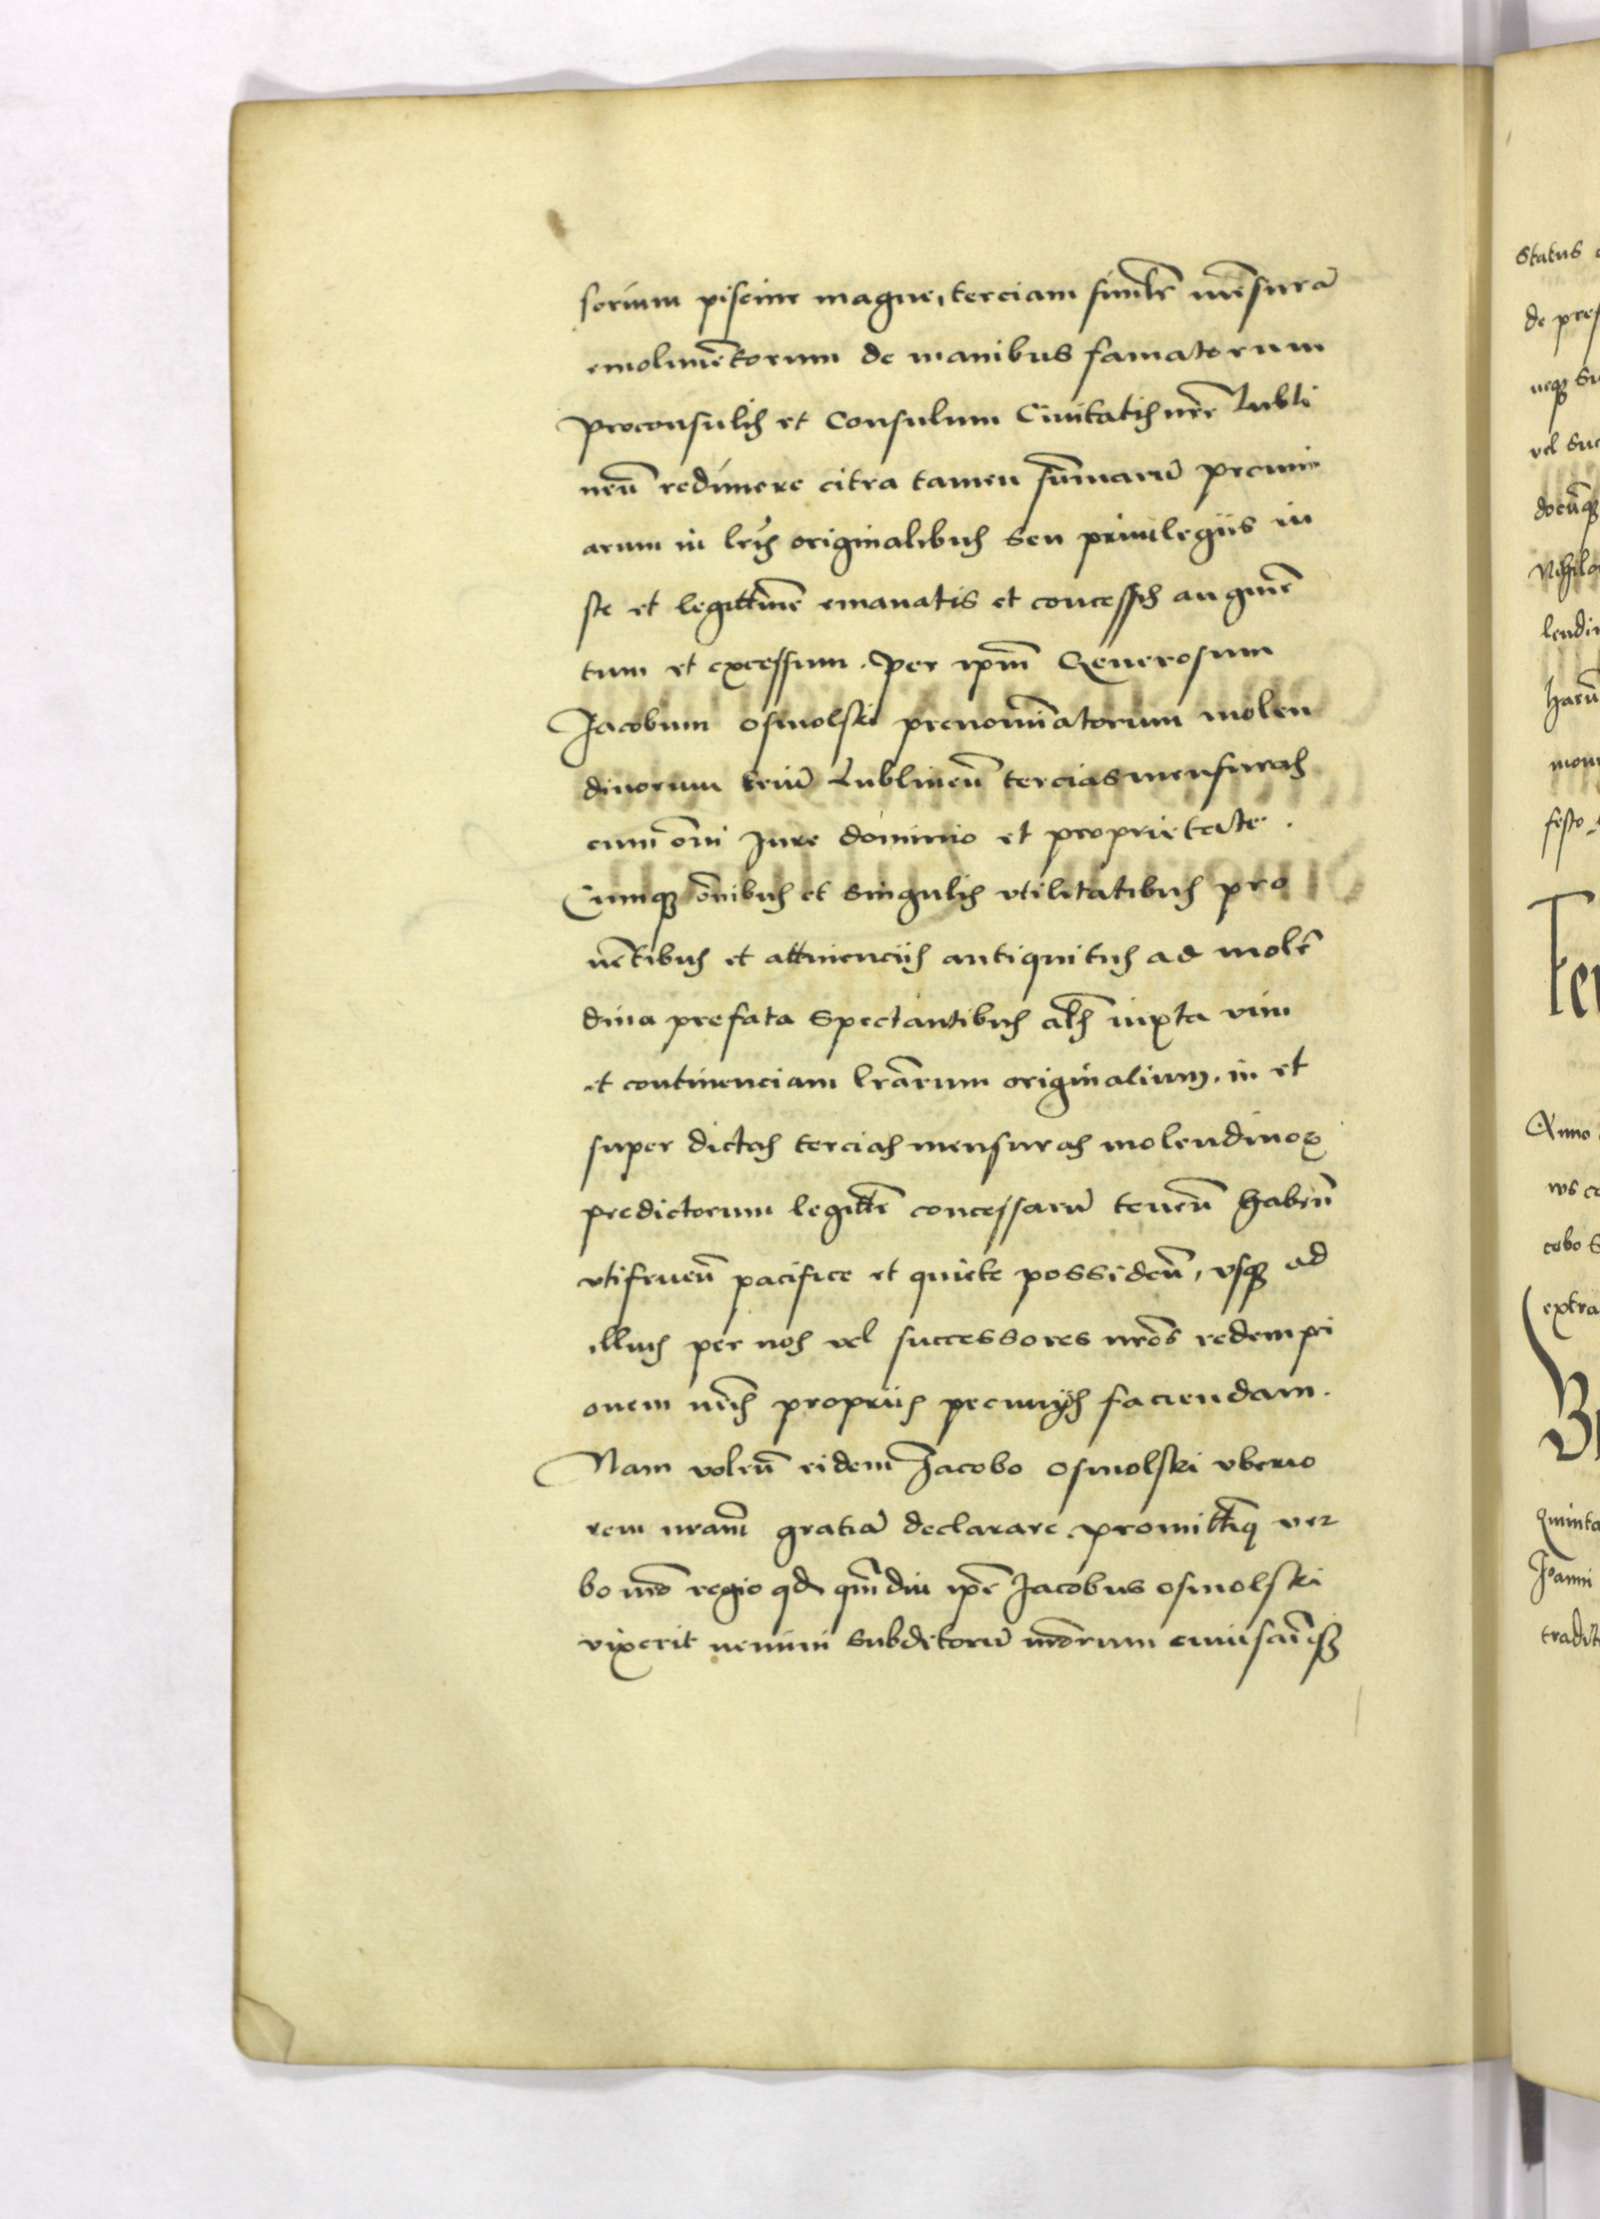 sorium piscine magne, terciam similr̄ mēsurā
emolumētorum de manibus famatorum
proconsulis et Consulum Ciuitatis nr̄e Lubli
neñ redimere citra tamen sūmarū pecuni
arum in lr̄is originalibus seu priuilegiis iu
ste et legittime emanatis et concessis augmē
tum et excessum. per ipm̄ Generosum
Jacobum osmolski prenominatorum molen
dinorum triū Lublineñ tercias mensuras
cum om̄i Jure dominio et proprietate.
Cumqꝫ om̄nibus et singulis vtilitatibus pro
uētibus et attinenciis antiquitus ad molē
dina prefata spectantibus als̄ iuxta vim
et continenciam lr̄arum originalium. in et
super dictas tercias mensuras molendinoꝝ
predictorum legittīe concessarū teneñ habeñ
vtifrueñ pacifice et quiete possideñ, vsqꝫ ad
illius per nos vel successores nr̄os redempci
onem nr̄is propriis pecuniis faciendam.
Nam voleñ eidem Jacobo osmolski vberio
rem nram̄ gratiā declarare promittimꝰ ver
bo nr̄o regio qd̄ qm̄diu ipē Jacobus osmolski
vixerit nemini subditorū nr̄orum cuiuscūqꝫ
Status
de pres
neqꝫ su
vel suc
Nihilo
lendin
harū
mon
festo
Anno
cobo S
extra
Quinta
Joanni
tradit